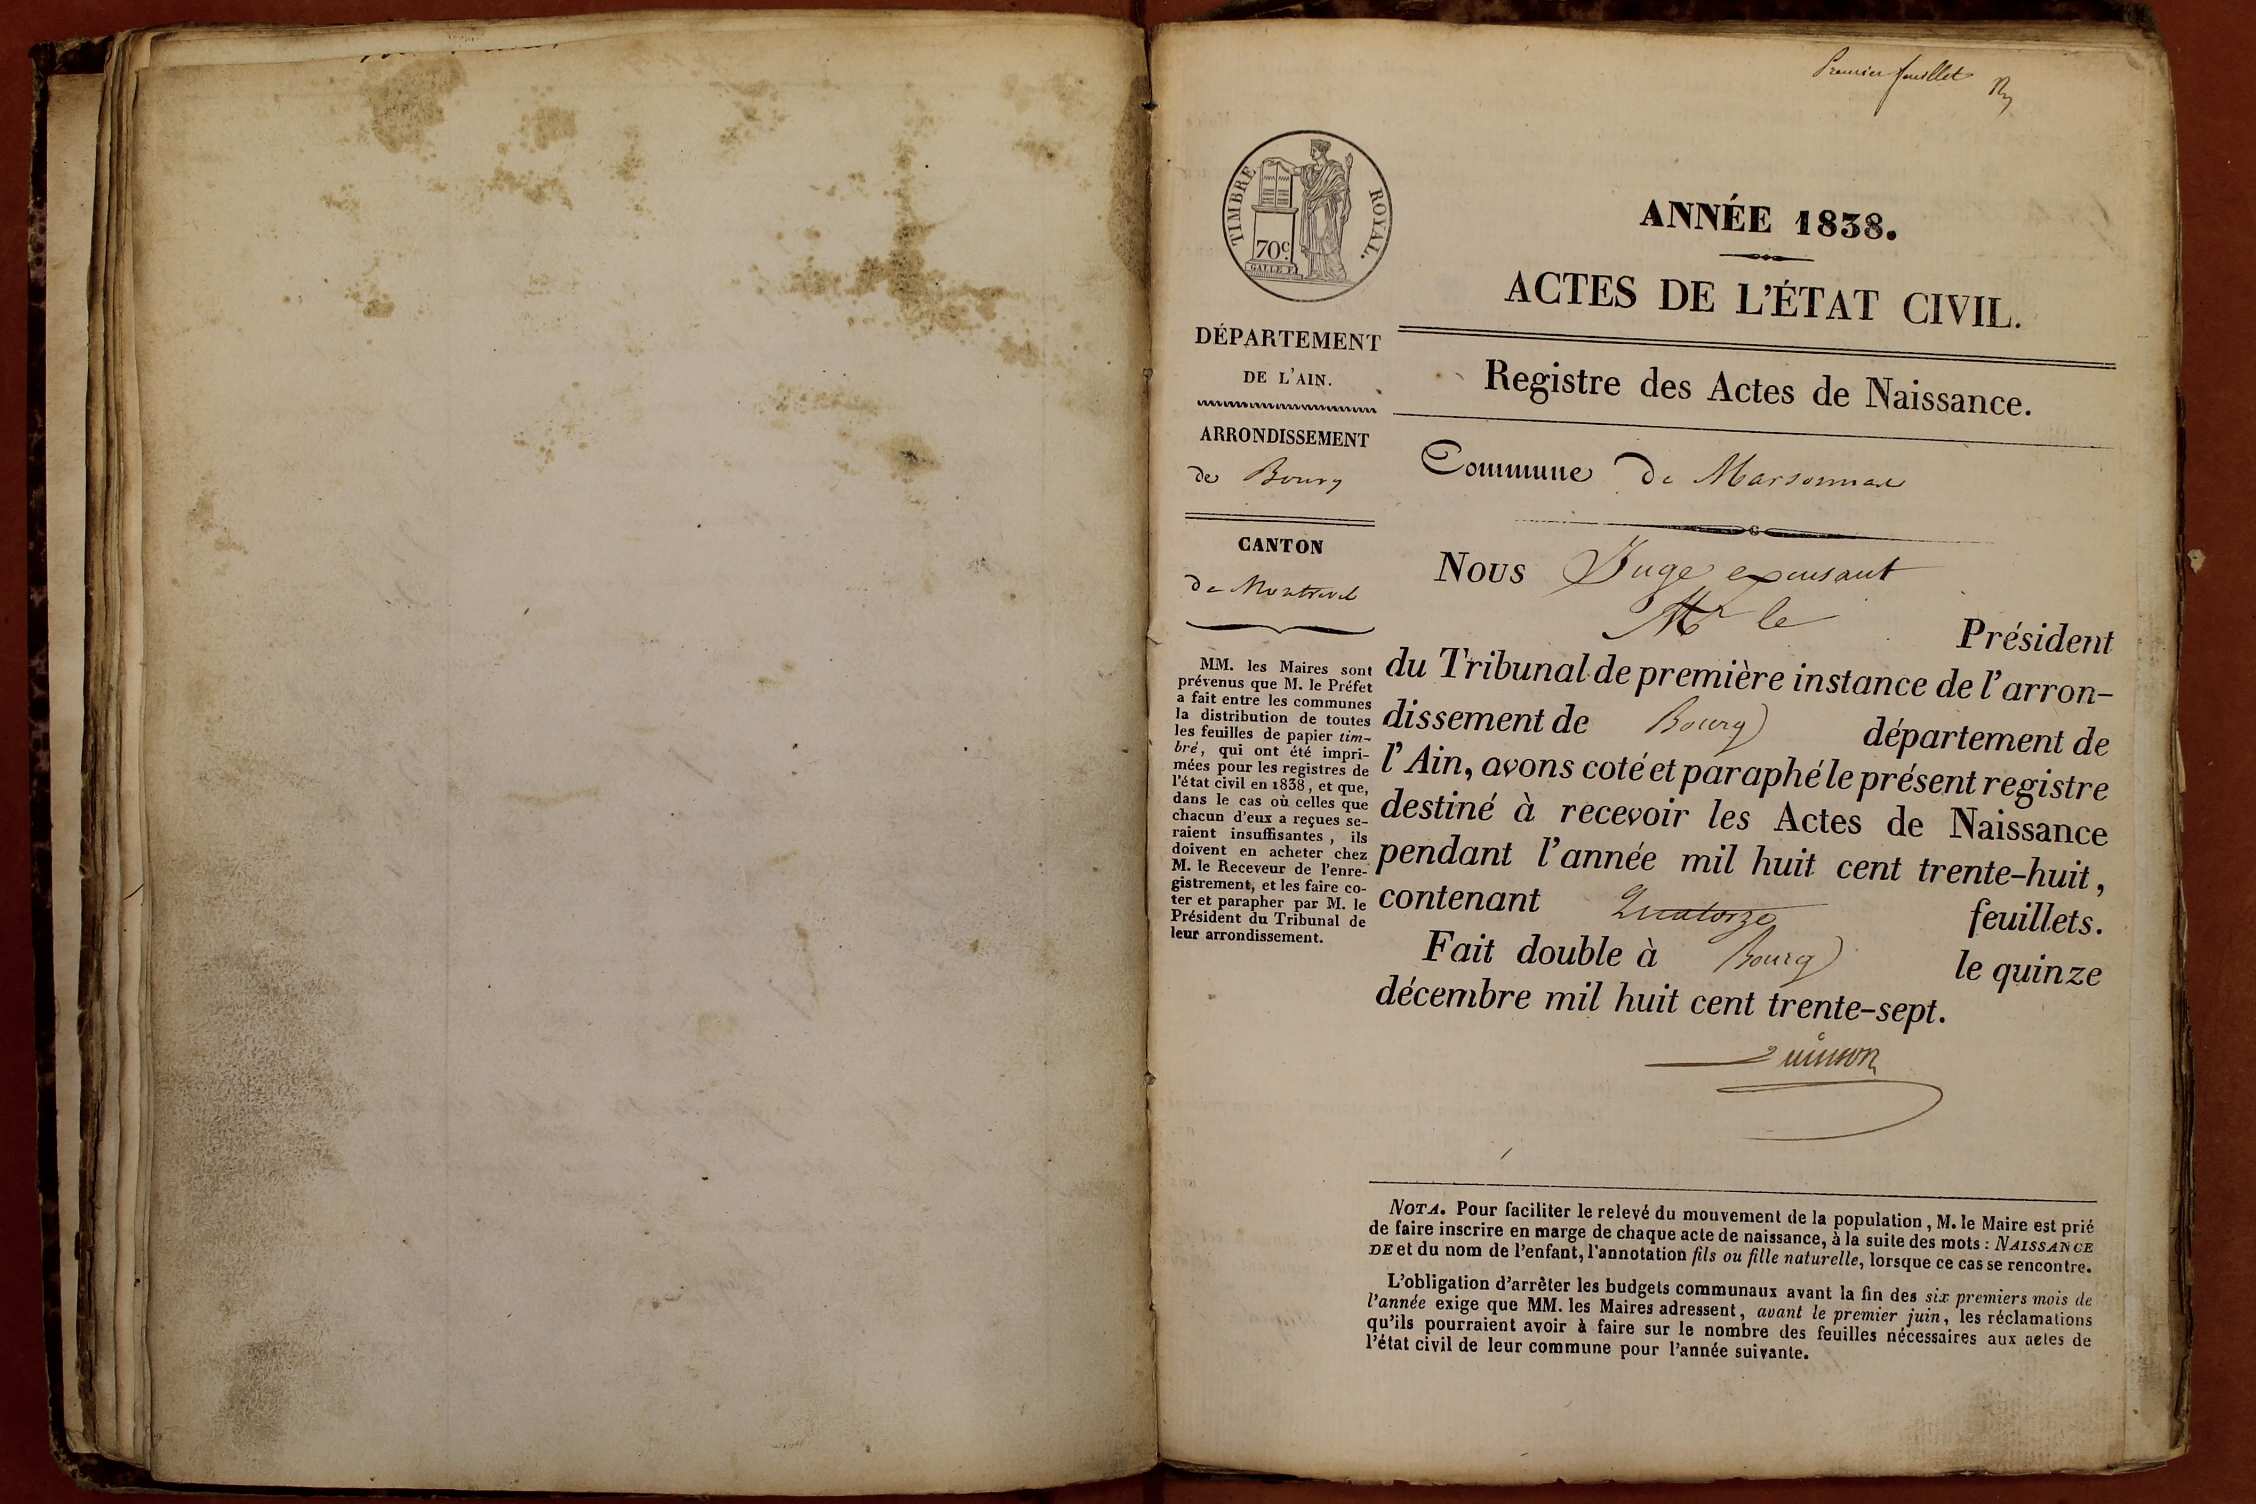 Premier feuillet
TIMBRE ROYAL.
70c.
GALLE F.
ANNÉE 1838.
ACTES DE L'ÉTAT CIVIL.
Registre des Actes de Naissance.
DÉPARTEMENT
DE L'AIN.
ARRONDISSEMENT
de Bourg
CANTON
de Montrevel
MM. les Maires sont
prévenus que M. le Préfet
a fait entre les communes
la distribution de toutes
les feuilles de papier tim-
bré, qui ont été impri-
mées pour les registres de
l'état civil en 1838, et que,
dans le cas où celles que
chacun d'eux a reçues se-
raient insuffisantes, ils
doivent en acheter chez
M. le Receveur de l'enre-
gistrement, et les faire co-
ter et parapher par M. le
Président du Tribunal de
leur arrondissement.
Commune de Marsonnas
Nous Juge
Mr le Président
du Tribunal de première instance de l'arron-
dissement de Bourg département de
l'Ain, avons coté et paraphé le présent registre
destiné à recevoir les Actes de Naissance
pendant l'année mil huit cent trente-huit,
contenant Quatorze feuillets.
Fait double à Bourg le quinze
décembre mil huit cent trente-sept.
NOTA. Pour faciliter le relevé du mouvement de la population, M. le Maire est prié
de faire inscrire en marge de chaque acte de naissance, à la suite des mots : NAISSANCE
DE et du nom de l'enfant, l'annotation fils ou fille naturelle, lorsque ce cas se rencontre.
L'obligation d'arrêter les budgets communaux avant la fin des six premiers mois de
l'année exige que MM. les Maires adressent, avant le premier juin, les réclamations
qu'ils pourraient avoir à faire sur le nombre des feuilles nécessaires aux actes de
l'état civil de leur commune pour l'année suivante.